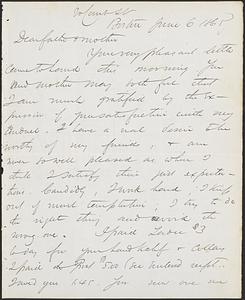 Boston June 6 1865
Dear father & mother
Your very pleasant letter
came to hand this morning. You
and mother may both feel that
I am much gratified by the ex-
pression of your satisfaction with my
conduct. I have a real desire to be
worthy of my friends, & am
never so well pleased as when I
think I satisfy their just expecta-
tions. Candidly, I work hard, I keep
out of much temptation; I try to do
the right thing and avoid the
wrong one. I paid $3
today for your handkfs & collars
I paid $500
I owe you 645. You now owe me